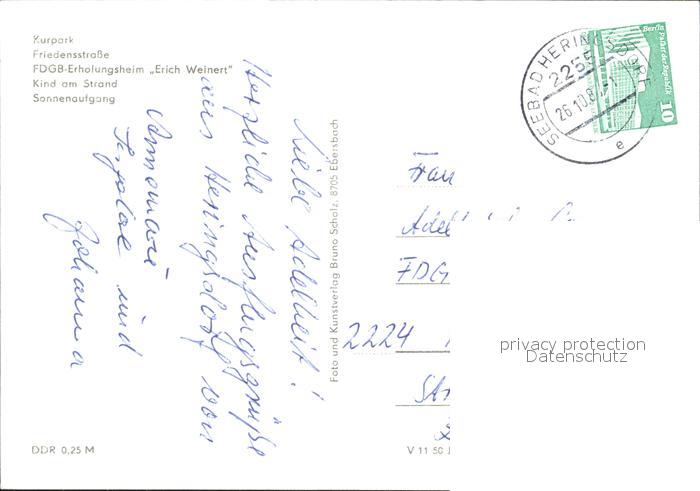 Kurpark
Friedensstraße
FDGB-Erholungsheim „Erich Weinert“
Kind am Strand
Sonnenaufgang
Liebe Adelheit!
Herzliche Ausflugsgrüße
aus Heringsdorf von
Annemarie
und
Johanna
Foto und Kunstverlag Bruno Scholz, 8705 Ebersbach
SEEBAD HERINGSDORF
2255
26.10.8
e
Berlin Palast der Republik
10
Frau
Adel
FDG
2224
privacy protection
Datenschutz
DDR 0,25 M
V 11 50